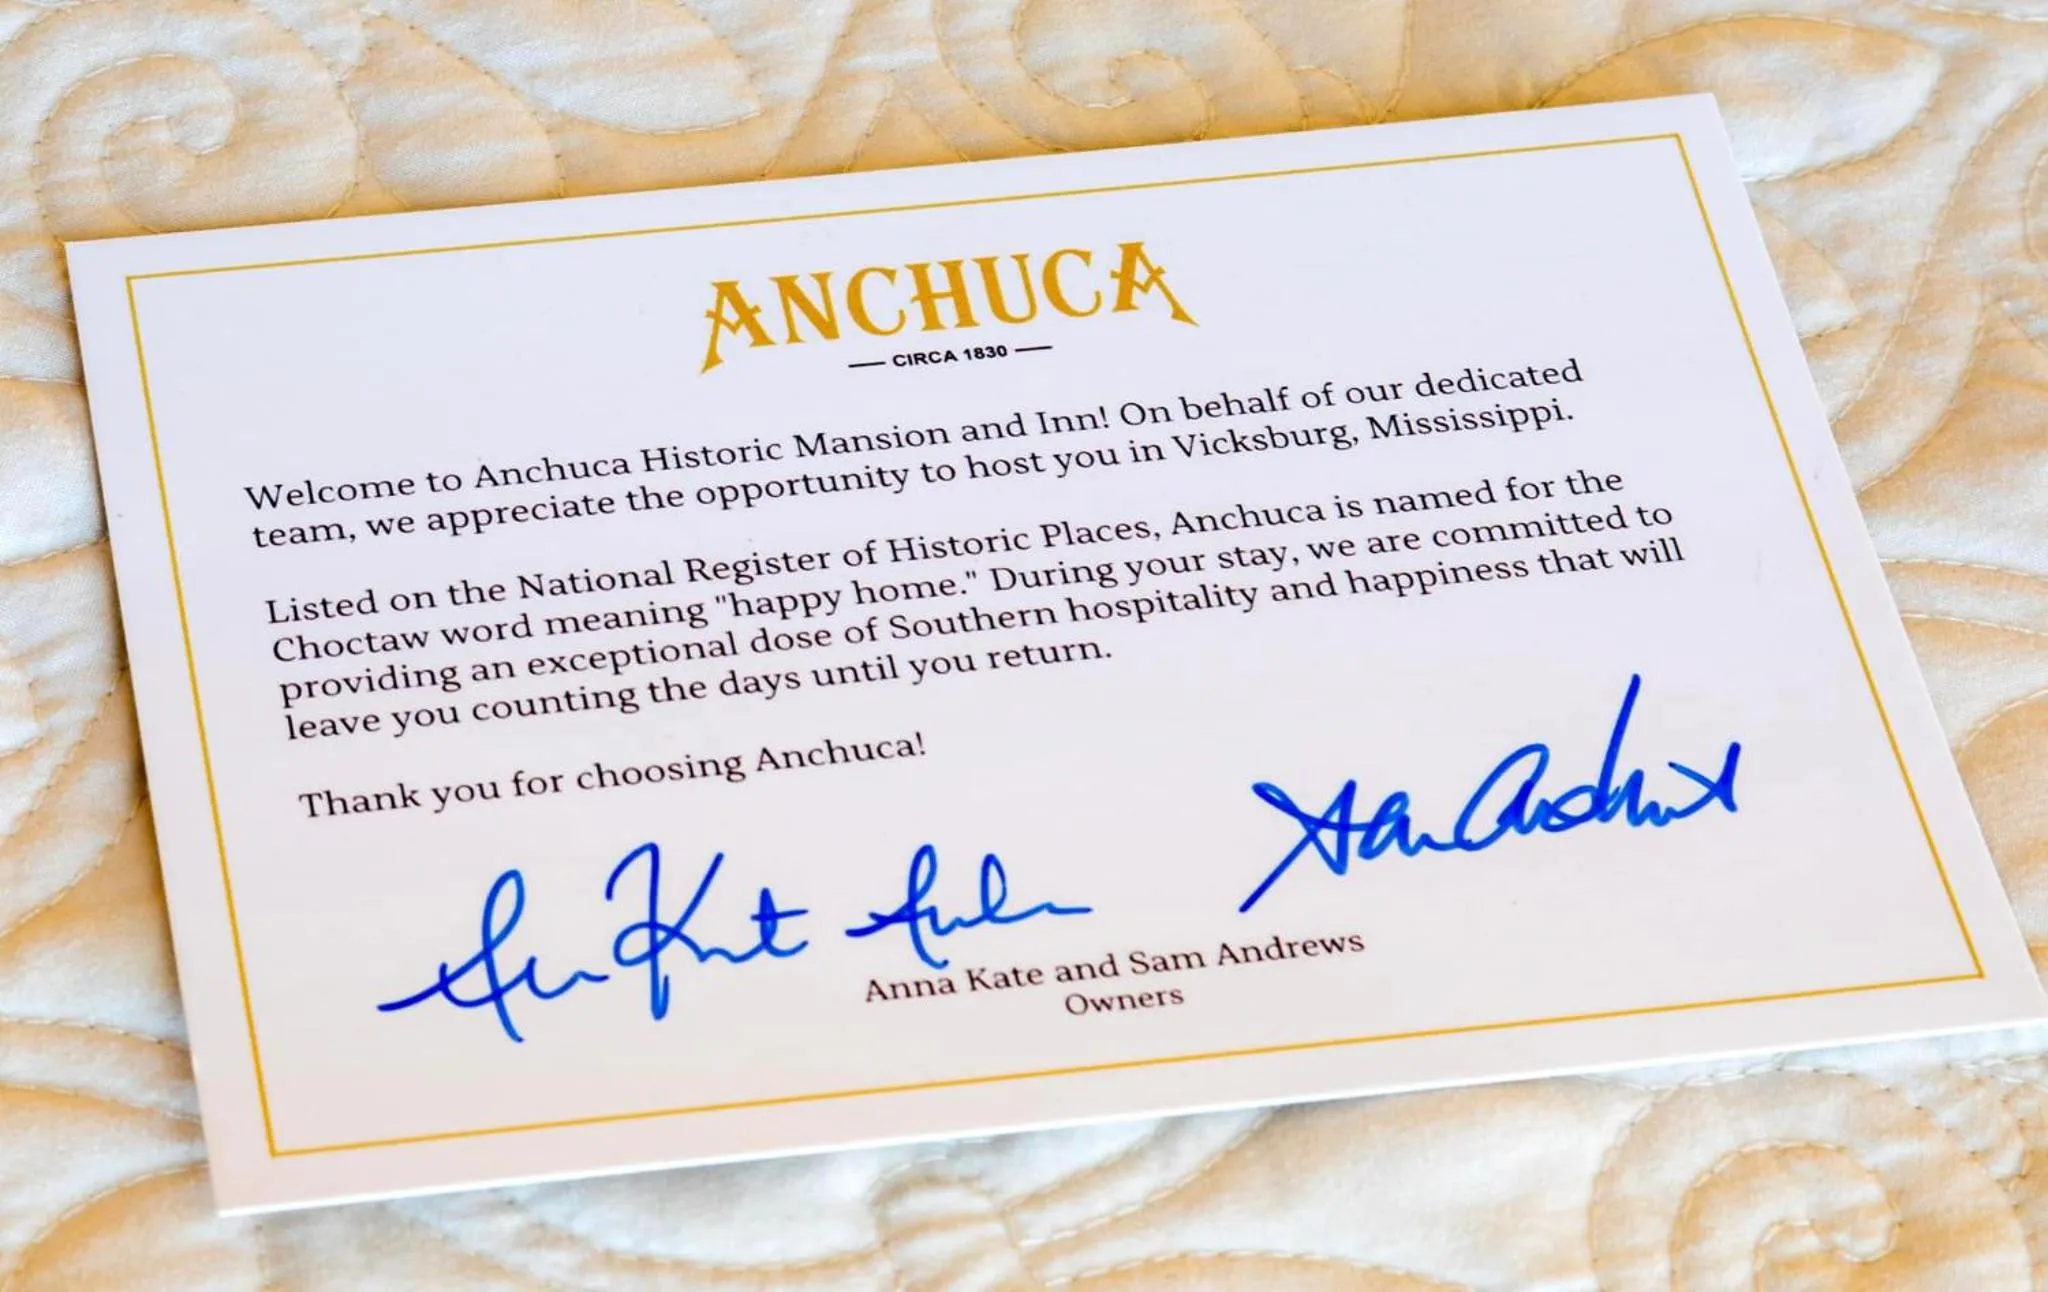 ANCHUCA
CIRCA 1830
Welcome to Anchuca Historic Mansion and Inn! On behalf of our dedicated
team, we appreciate the opportunity to host you in Vicksburg, Mississippi.
Listed on the National Register of Historic Places, Anchuca is named for the
Choctaw word meaning "happy home." During your stay, we are committed to
providing an exceptional dose of Southern hospitality and happiness that will
leave you counting the days until you return.
Thank you for choosing Anchuca!
Sam Andrews
Anna Kate and Sam Andrews
Owners